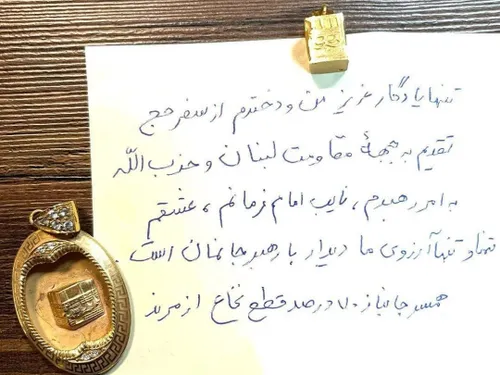 تنها یادگار عزیز من و دخترم از سفر حج
تقدیم به جبههٔ مقاومت لبنان و حزب الله
به امر رهبرم، نایب امام زمانم، عشقم
تنها و تنها آرزوی ما دیدار با رهبر جانمان است.
همسر جانباز ۷۰ درصد قطع نخاع از مرند